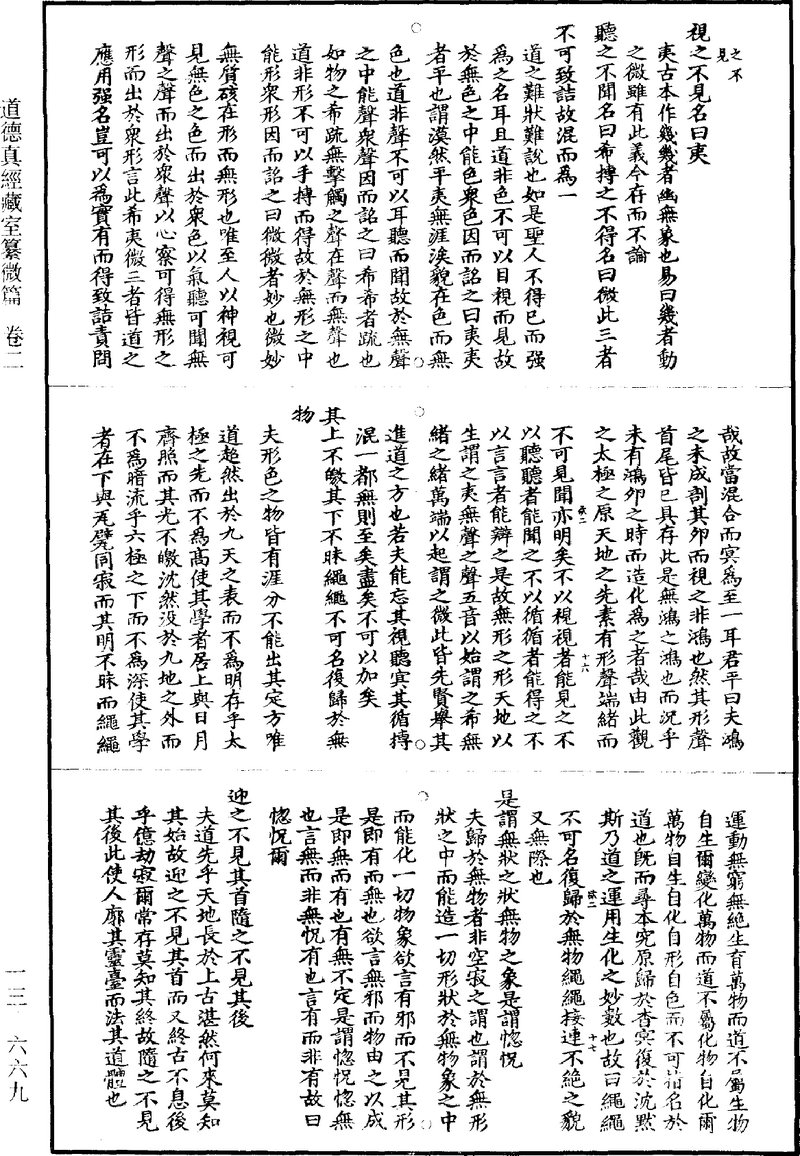 之不
見
視之不見名曰夷
夷古本作幾幾者幽無象也易曰幾者動
之微雖有此義今存而不論
聽之不聞名曰希摶之不得名曰微此三者
不可致詰故混而為一
道之難狀難說也如是聖人不得已而强
為之名耳且道非色不可以目視而見故
於無色之中能色衆色因而詺之曰夷夷
者平也謂漠然平夷無涯涘貌在色而無
色也道非聲不可以耳聽而聞故於無聲
之中能聲衆聲因而詺之曰希希者疏也
如物之希疏無擊觸之聲在聲而無聲也
道非形不可以手摶而得故於無形之中
能形衆形因而詺之曰微微者妙也微妙
無質礙在形而無形也唯至人以神視可
見無色之色而出於衆色以氣聽可聞無
聲之聲而出於衆聲以心察可得無形之
形而出於衆形言此希夷微三者皆道之
應用强名豈可以為實有而得致詰責問
哉故當混合而冥為至一耳君平曰夫鴻
之未成剖其夘而視之非鴻也然其形聲
首尾皆已具存此是無鴻之鴻也而況乎
未有鴻夘之時而造化為之者哉由此觀
之太極之原天地之先素有形聲端緒而
不可見聞亦明矣不以視視者能見之不
以聽聽者能聞之不以循循者能得之不
以言言者能辯之是故無形之形天地以
生謂之夷無聲之聲五音以始謂之希無
緒之緒萬端以起謂之微此皆先賢舉其
進道之方也若夫能忘其視聽㝠其循摶
混一都無則至矣盡矣不可以加矣
其上不皦其下不昧繩繩不可名復歸於無
物
夫形色之物皆有涯分不能出其定方唯
道超然出於九天之表而不為明存乎太
極之先而不為高使其學者居上與日月
齊照而其光不皦沈然没於九地之外而
不為暗流乎六極之下而不為深使其學
者在下與瓦甓同寂而其明不昧而繩繩
運動無窮無絶生育萬物而道不屬生物
自生爾變化萬物而道不屬化物自化爾
萬物自生自化自形自色而不可指名於
道也既而尋本究原歸於杳冥復於沈默
斯乃道之運用生化之妙數也故曰繩繩
不可名復歸於無物繩繩接連不絶之貌
又無際也
是謂無狀之狀無物之象是謂惚恍
夫歸於無物者非空寂之謂也謂於無形
狀之中而能造一切形狀於無物象之中
而能化一切物象欲言有邪而不見其形
是即有而無也欲言無邪而物由之以成
是即無而有也有無不定是謂惚恍惚無
也言無而非無恍有也言有而非有故曰
惚恍爾
迎之不見其首隨之不見其後
夫道先乎天地長於上古湛然何來莫知
其始故迎之不見其首而又終古不息後
乎億劫寂爾常存莫知其終故隨之不見
其後此使人廓其靈臺而法其道體也
十六
十七
道德真經藏室纂微篇　卷二
一三・六六九